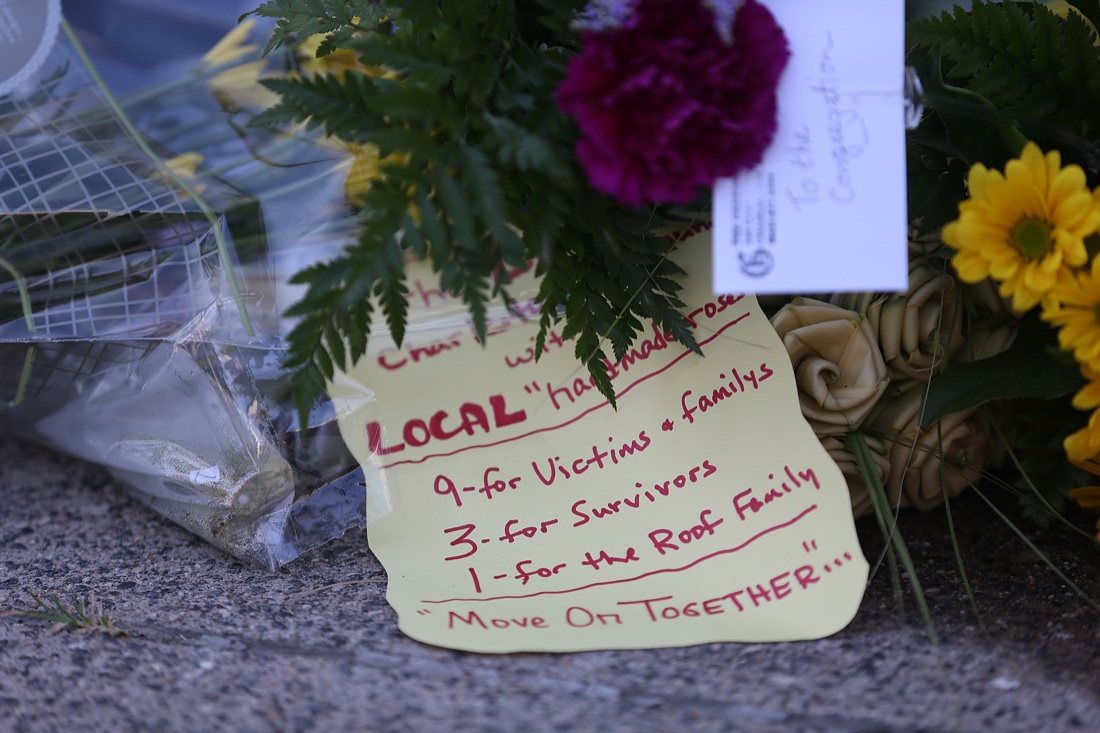 To the
Congregation
with
LOCAL "handmade rose
9-for Victims & familys
3-for Survivors
1-for the Roof Family
"Move On TOGETHER"...